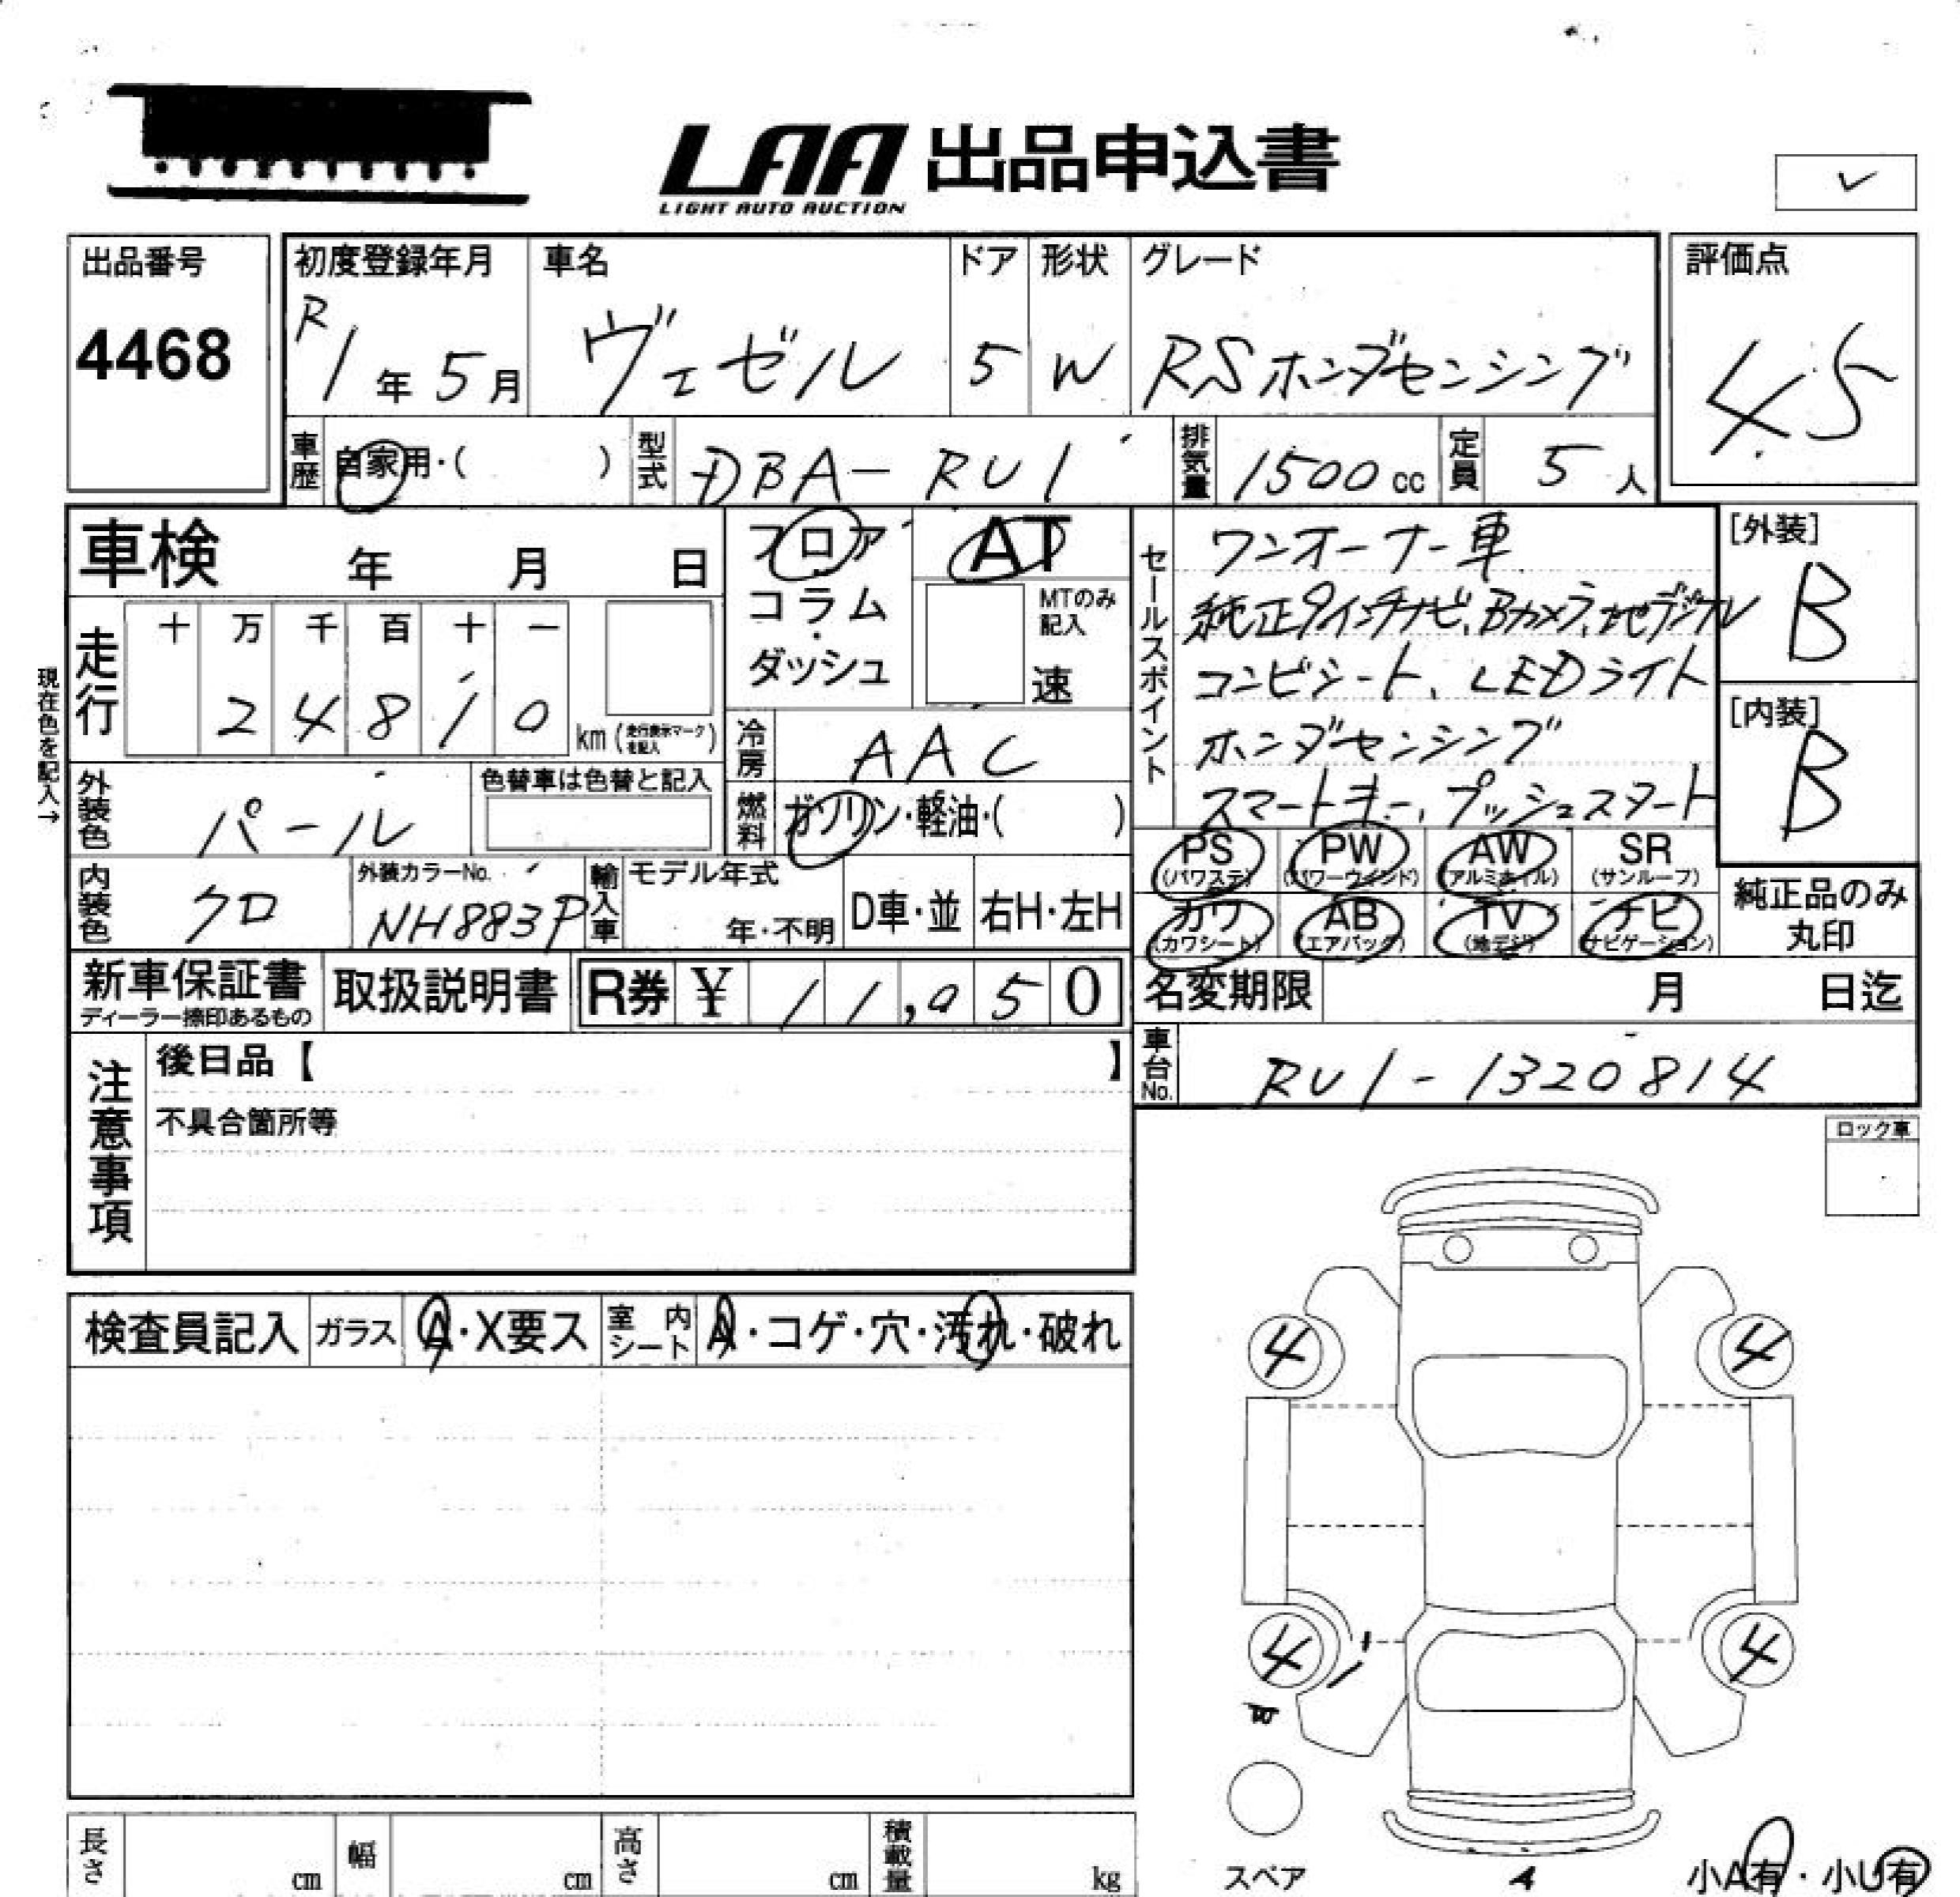 LAA 出品申込書
LIGHT AUTO AUCTION
出品番号
4468
初度登録年月
R1年5月
車名
ヴェゼル
ドア
5
形状
W
グレード
RSホンダセンシング
評価点
4.5
車歴
自家用・( )
型式
DBA-RU1
排気量
1500cc
定員
5人
車検 年 月 日
現在色を記入→
走行
十 万 千 百 十 一
2 4 8 1 0
km(走行表示マークを記入)
フロア
コラム
・
ダッシュ
AT
MTのみ
記入
速
冷房
AAC
燃料
ガソリン・軽油・( )
外装色
パール
色替車は色替と記入
内装色
クロ
外装カラーNo.
NH883P
輸入車
モデル年式
年・不明
D車・並
右H・左H
セールスポイント
ワンオーナー車
純正9インチナビ、Bカメラ、地デジフル
コンビシート、LEDライト
ホンダセンシング
スマートキー、プッシュスタート
[外装]
B
[内装]
B
PS
(パワステ)
PW
(パワーウインド)
AW
(アルミホイル)
SR
(サンルーフ)
カワ
(カワシート)
AB
(エアバック)
TV
(地デジ)
ナビ
(ナビゲーション)
純正品のみ
丸印
新車保証書
ディーラー捺印あるもの
取扱説明書
R券 ¥ 11,050
名変期限 月 日迄
車台No.
RU1-1320814
注意事項
後日品【 】
不具合箇所等
ロック車
検査員記入
ガラス
A・X要ス
室内シート
A・コゲ・穴・汚れ・破れ
4
4
4
4
スペア
A
小A有・小U有
長さ cm
幅 cm
高さ cm
積載量 kg